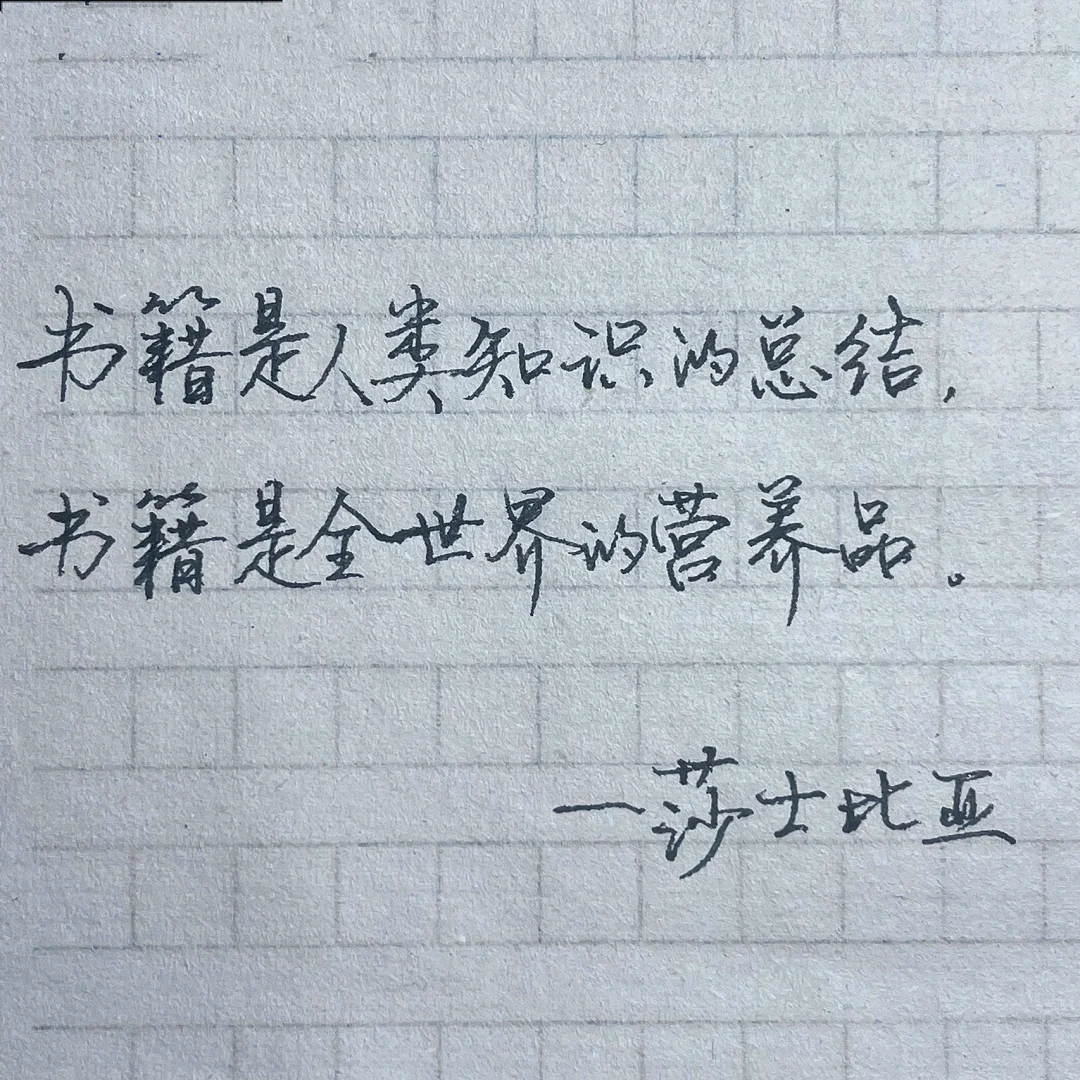 书籍是人类知识的总结，
书籍是全世界的营养品。
—莎士比亚